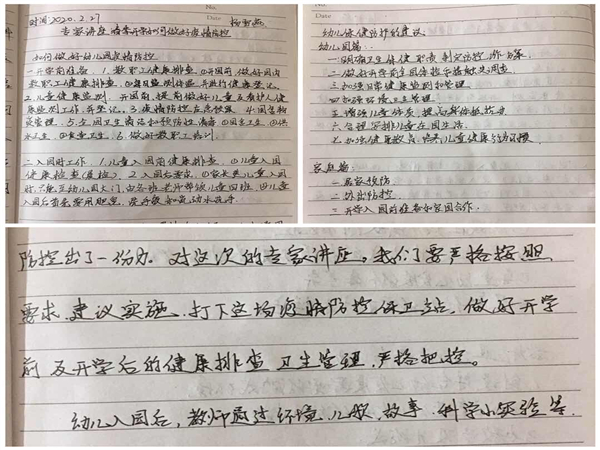 No.
时间2020.2.27
Date
专家讲座 春季开学如何做好疫情防控
如何做好幼儿园疫情防控
一、开学前准备 1.教职工健康排查 ①开园前,做好园内
教职工健康排查, ②每日监测体温并进行健康登记
2.儿童健康监测 开园前,提前做好儿童及看护人健
康监测工作,并登记。3.疫情防控应急
4.园舍物
5.全园卫生清洁和预防性消毒 ①园舍卫生 ②
水卫生 ③食堂卫生 6.做好教职工培训
二、入园时工作 1.儿童入园前健康排查 ①儿童入园
健康检查(晨检) 2.入园后要求 ①家长送儿童入园
时,只能至幼儿园大门,由各班老师带领儿童回班 ②儿童
入园后首先要用肥皂、
流动水洗手
No.
Date
幼儿保健防护的建议
幼儿园篇:
一.明确卫生保健职责 制定防控
二.做好开学前全园传染病接触史调查
三.加强日常健康监测和管理
四.加强环境卫生管理
五.增强儿童体质,提高身体抵抗力
六.合理安排儿童在园生活
七.加强健康教育 培养儿童健康行为习惯
家庭篇:
一.居家预防
二.外出防控
三.开学入园前准备和家园合作.
防控出了一份力。对这次的专家讲座,我们要严格按照
要求、建议实施、打下这场疫情防控保卫战,做好开学
前及开学后的健康排查 卫生管理,严格把控。
幼儿入园后,教师通过环境、儿歌、故事、科学小实验等